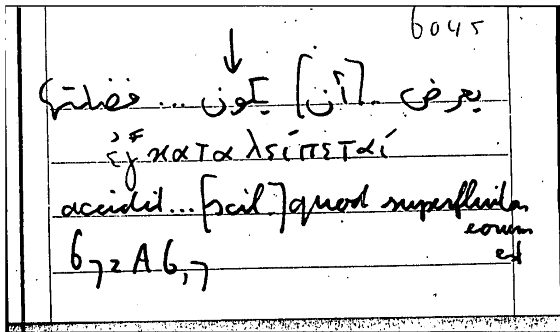 6045
يعرض ... [أن] يكون ... فضلتها
ἐγκαταλείπεταί
accidit... [scil.] quod superfluitas
eorum
est
672 A 6,7